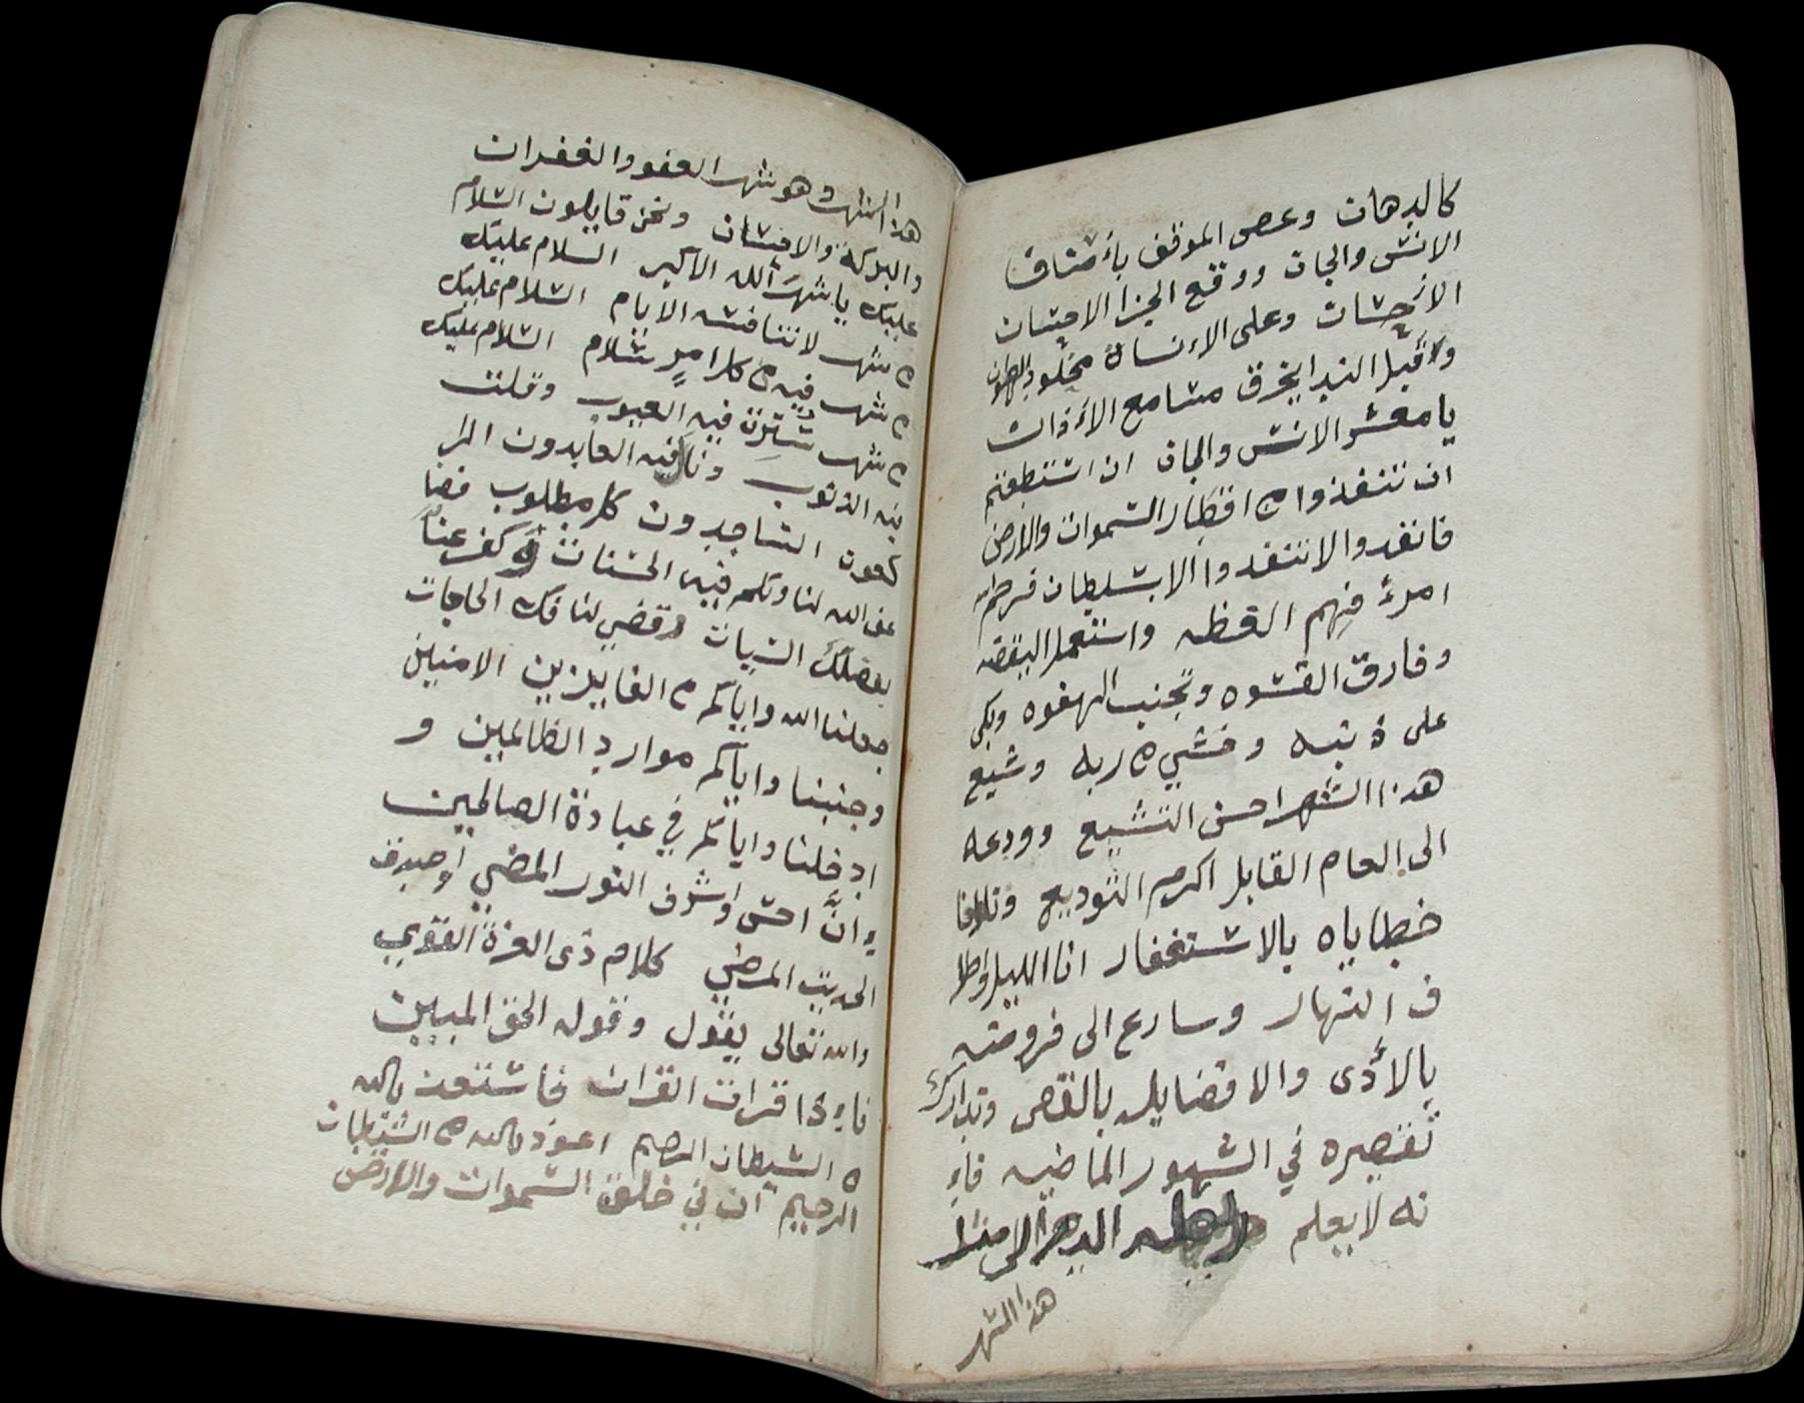 كالدهان وعص الموقف بأصناف
الانس والجان ووقع الجزا الاحسان
الاحسان وعلى الاءساة
وأقبل الندا يخرق مسامع الأذان
يا معشر الانس والجان ان استطعتم
ان تنفذوا من اقطار السموات والارض
فانفدوا لا تنفدوا الا بسلطان فرحم الله
امرءً فهم العظه واستعمل اليقضه
وفارق القسوه وتجنب الهفوه وبكى
على ذنبه وخشي من ربه وشيع
هذا الشهر احسن التشييع وودعه
الى العام القابل اكرم التوديع وتلافا
خطاياه بالاستغفار انا الليل واطرا
ف النهار وسارع الى فروضه
بالأدى والا فضايل بالقص وتدارك
تقصيره في الشهور الماضيه فاءِ
نه لا يعلم الدهر الى مثل
هذا الشهر
هذا الشهر وهو شهر العفو والغفران
والبركة والاحسان ونحن قايلون السلام
عليك يا شهر الله الاكبر السلام عليك
من شهر لا تنافسه الايام السلام عليك
من شهر فيه من كل امرٍ سلام السلام عليك
من شهر سترت فيه العيوب وقلت
فيه الذنوب ونال فيه العابدون الرا
كعون الساجدون كل مطلوب فضا
عف الله لنا ولكم فيه الحسنات وكفر عنا
بفضلك السيات وقضي لنا فيك الحاجات
جعلنا الله واياكم من الفايزين الامنين
وجنبنا واياكم موارد الظالمين و
ادخلنا واياكم في عبادة الصالحين
و انَّ احسن واشرف النور المضي واصدق
الحديث المرضي كلام ذى العزة القوي
والله تعالى يقول وقوله الحق المبين
فاءذا قرات القران فاستعذ بالله
من الشيطان الرجيم اعوذ بالله من الشيطان
الرجيم ان في خلق السموات والارض